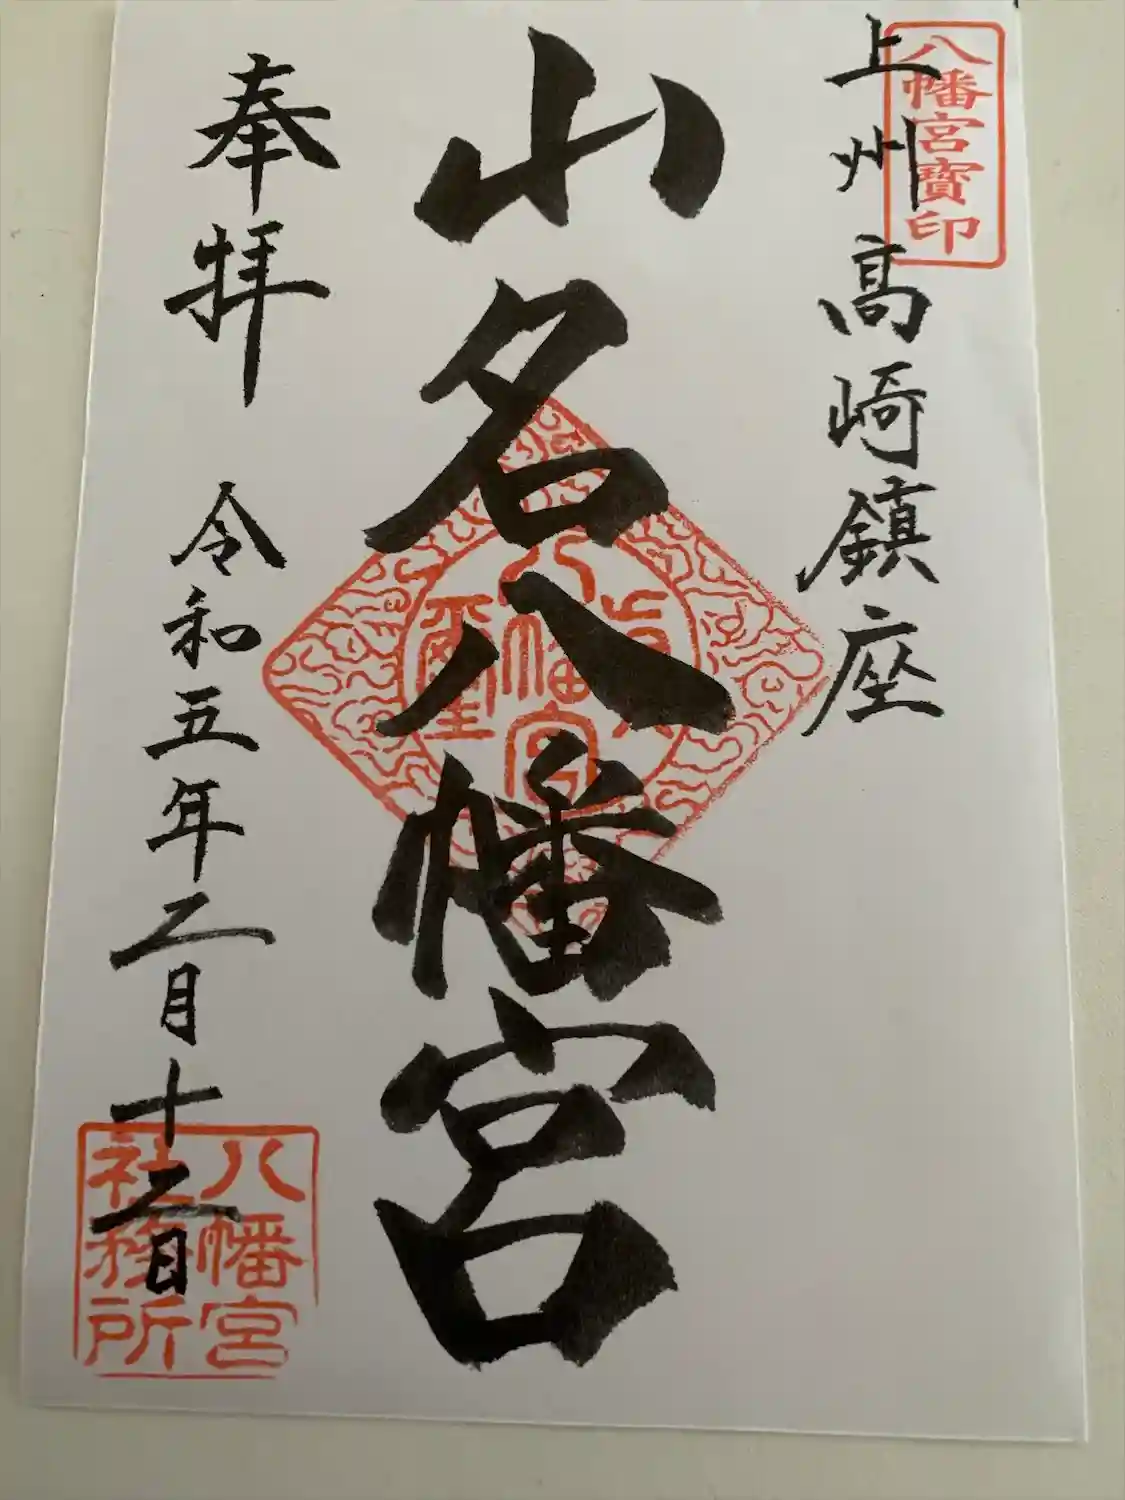 八幡宮寳印
上州高崎鎮座
山名八幡宮
奉拝
令和五年二月十二日
八幡宮
社務所